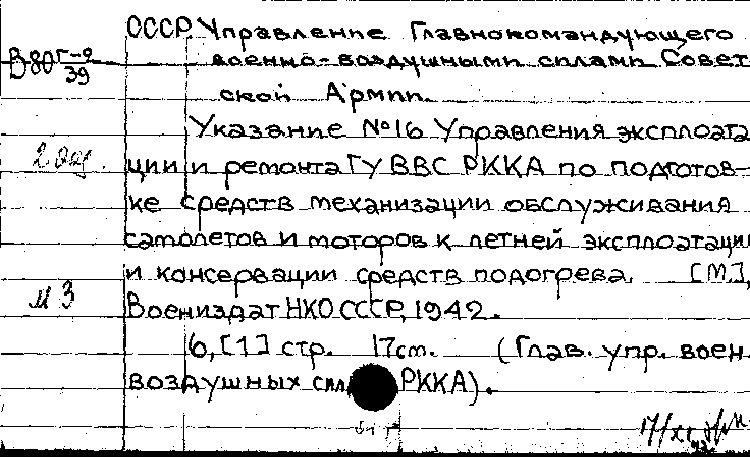 СССР Управление Главнокомандующего
В80 г-9
39
военно-воздушными силами Совет-
ской Армии.
Указание №16 Управления эксплоата-
2 экз.
ции и ремонта ГУ ВВС РККА по подготов-
ке средств механизации обслуживания
самолетов и моторов к летней эксплоатации
и консервации средств подогрева. [М.],
м 3
Воениздат НКО СССР, 1942.
6, [1] стр. 17см. (Глав. упр. воен.
воздушных сил РККА).